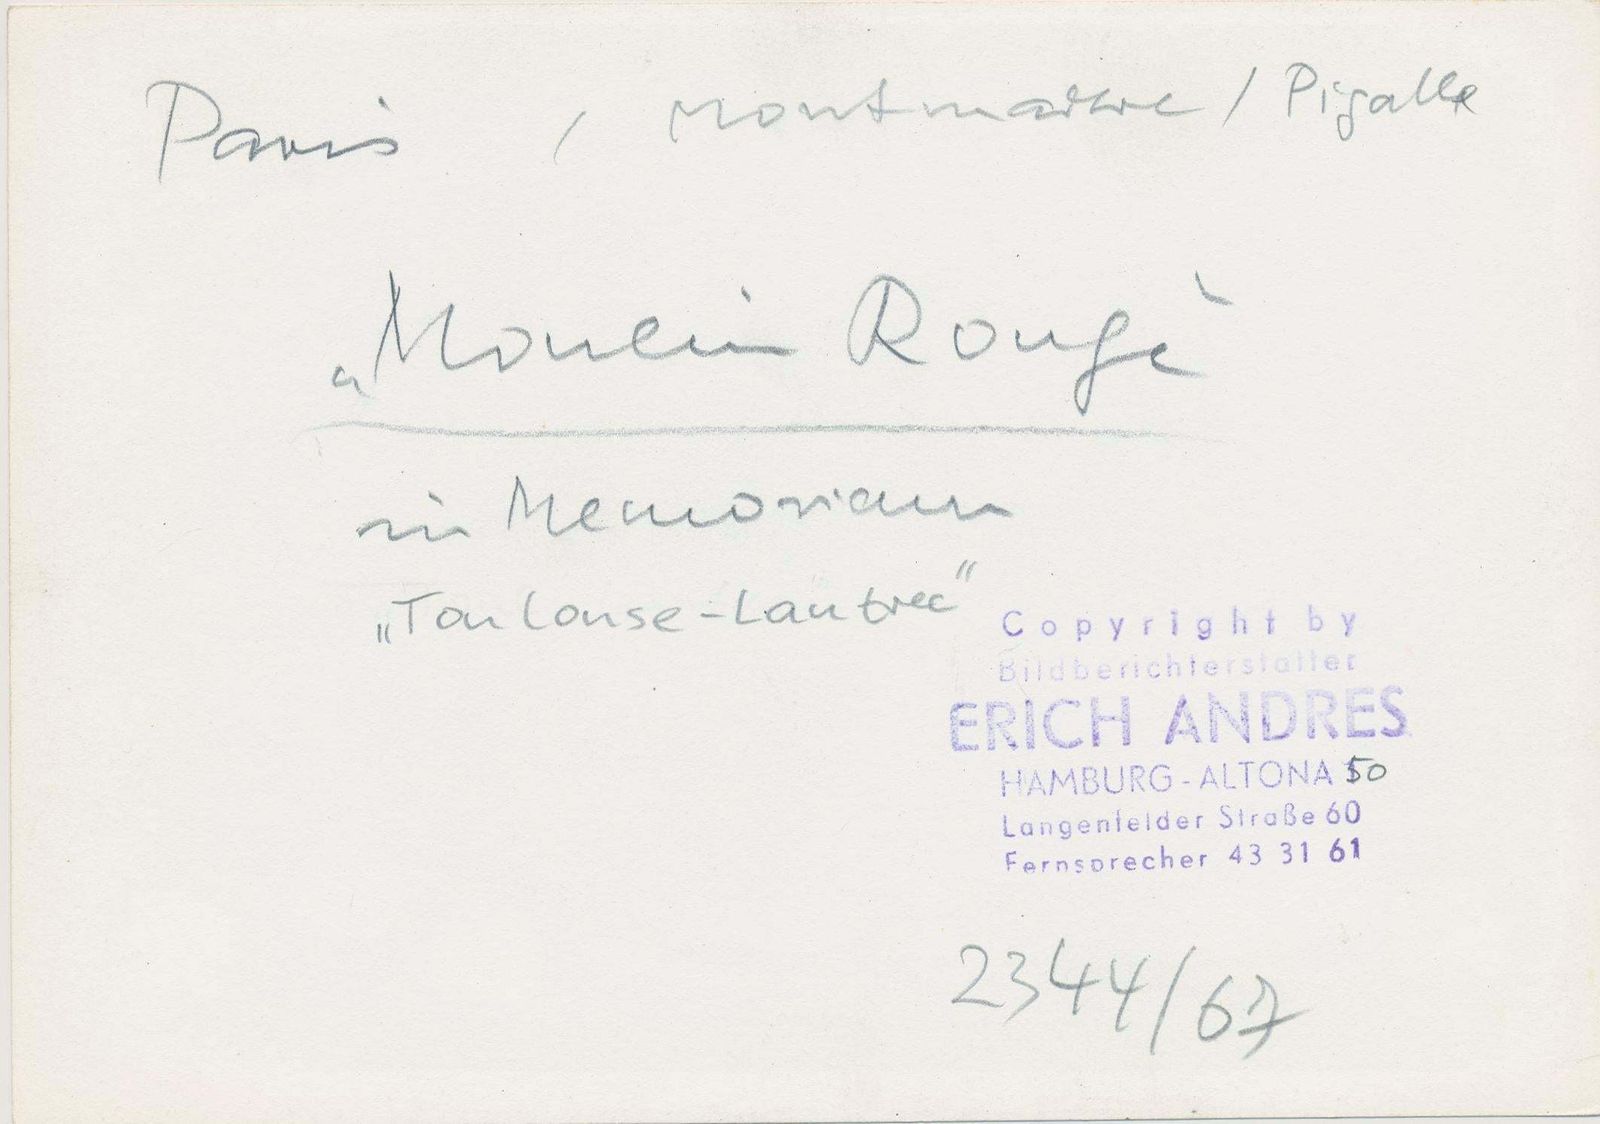 Paris / Montmartre / Pigalle
„Moulin Rouge“
in Memoriam
„Toulouse-Lautrec“
Copyright by
Bildberichterstatter
ERICH ANDRES
HAMBURG-ALTONA 50
Langenfelder Straße 60
Fernsprecher 43 31 61
2344/67